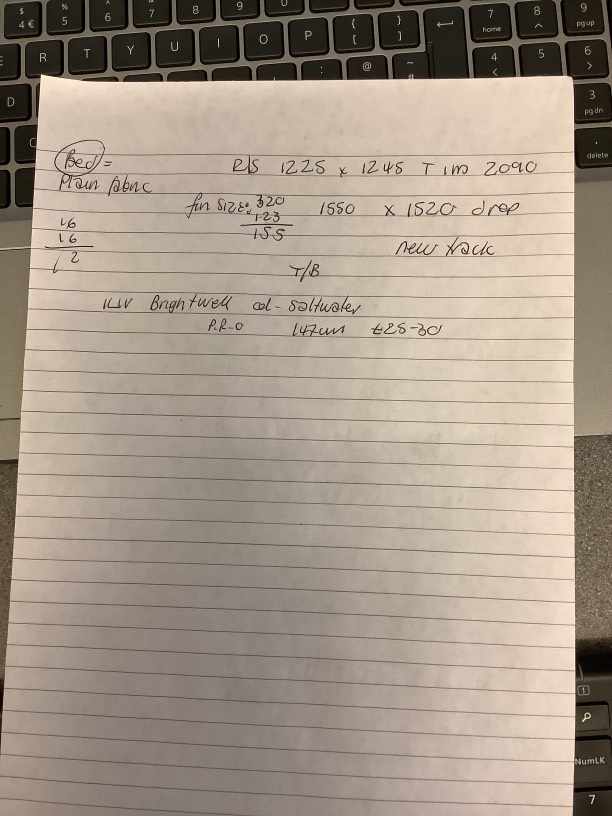 $ 4 €
% 5
^ 6
7
8
9
{ [
} ]
7 home
8 ^
9 pg up
R T Y U I O P
4 <
5
6 >
: @ ~ #
D
3 pg dn
. delete
Bed = R/S 1225 x 1245 T 1m 2090
Plain fabric
fin size: 320 1550 x 1520 drop
123
155
16
16
new track
T/B
Brightwell col - Saltwater
P.R-O 147cm £25-30
NumLK
7